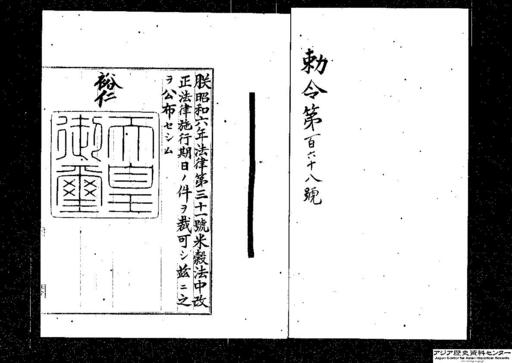 勅令第百六十八號
朕昭和六年法律第三十一號米穀法中改
正法律施行期日ノ件ヲ裁可シ茲ニ之
ヲ公布セシム
裕仁
天皇御璽
アジア歴史資料センター
Japan Center for Asian Historical Records